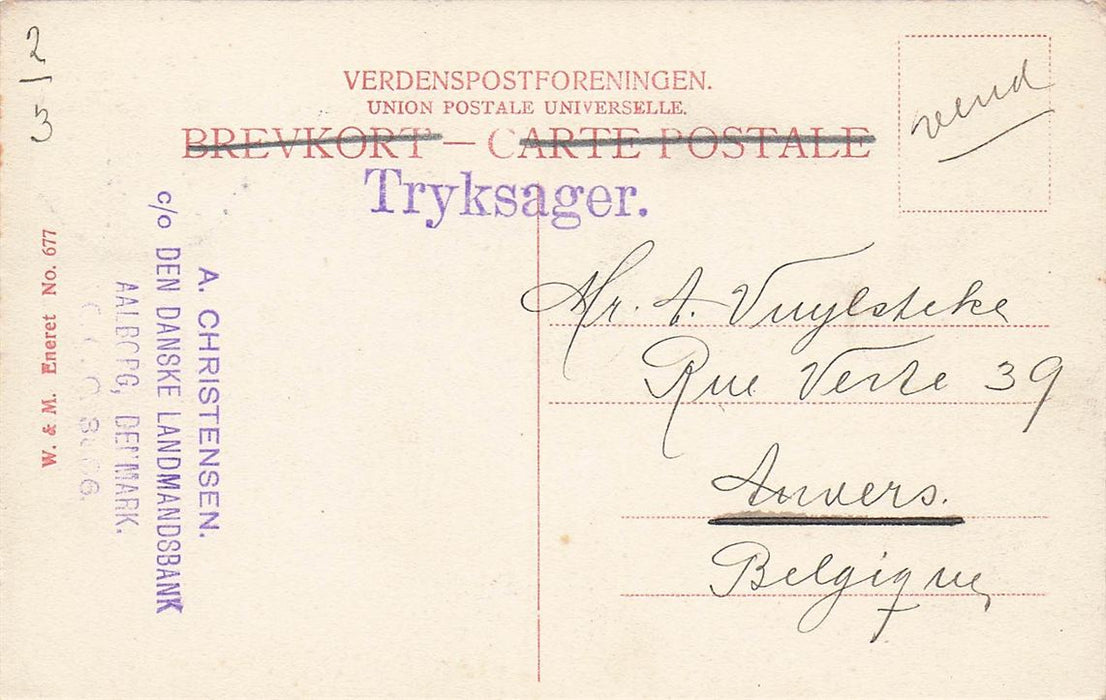 2
3
VERDENSPOSTFORENINGEN.
UNION POSTALE UNIVERSELLE.
BREVKORT — CARTE POSTALE
vend
Tryksager.
A. CHRISTENSEN.
c/o DEN DANSKE LANDMANDSBANK
AALBORG, DENMARK.
W. & M. Eneret No. 677
Mr. A. Vuylsteke
Rue Verte 39
Anvers.
Belgique